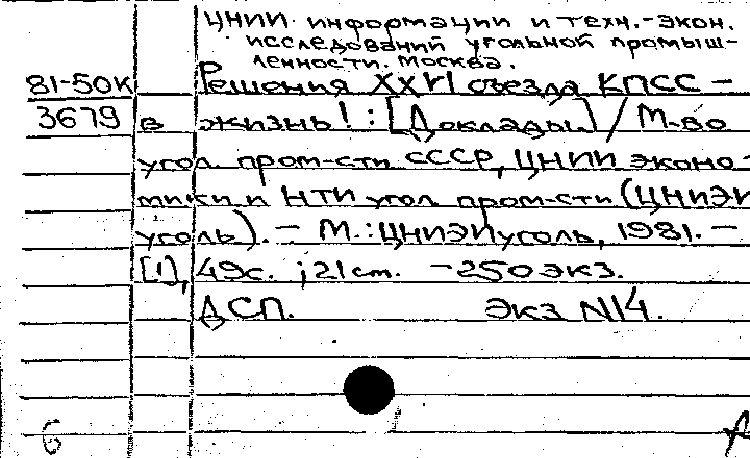 ЦНИИ информации и техн.-экон.
исследований угольной промыш-
ленности. Москва.
81-50К Решения XXVI съезда КПСС -
3679 в жизнь! : [Доклады] / М-во
угол. пром-сти СССР, ЦНИИ эконо-
мики и НТИ угол. пром-сти (ЦНИЭИ
уголь). - М.: ЦНИЭИуголь, 1981. -
[1], 49с. ; 21 см. - 250 экз.
ДСП. Экз N14.
6 А